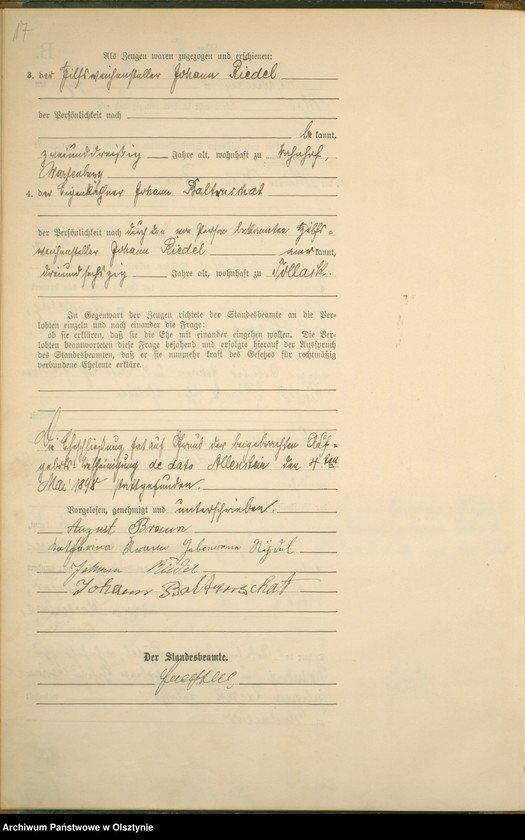 17
Als Zeugen waren zugezogen und erschienen:
3. der Hilfsweichensteller Johann Riedel
der Persönlichkeit nach
be kannt,
zweiunddreißig Jahre alt, wohnhaft zu Bahnhof
Wartenburg
4. der Eigenkäthner Johann Baltruschat
der Persönlichkeit nach durch den von Person bekannten Hilfs-
weichensteller Johann Riedel aner kannt,
dreiundsechszig Jahre alt, wohnhaft zu Tollack.
In Gegenwart der Zeugen richtete der Standesbeamte an die Ver-
lobten einzeln und nach einander die Frage:
ob sie erklären, daß sie die Ehe mit einander eingehen wollen. Die Ver-
lobten beantworteten diese Frage bejahend und erfolgte hierauf der Ausspruch
des Standesbeamten, daß er sie nunmehr kraft des Gesetzes für rechtmäßig
verbundene Eheleute erkläre.
Die Eheschließung hat auf Grund der beigebrachten Auf-
gebots-Bescheinigung de dato Allenstein den 4ten
Mai 1898 stattgefunden.
Vorgelesen, genehmigt und unterschrieben.
August Braun
Braun geborene
Johann Riedel
Johann Baltruschat
Der Standesbeamte.
Archiwum Państwowe w Olsztynie